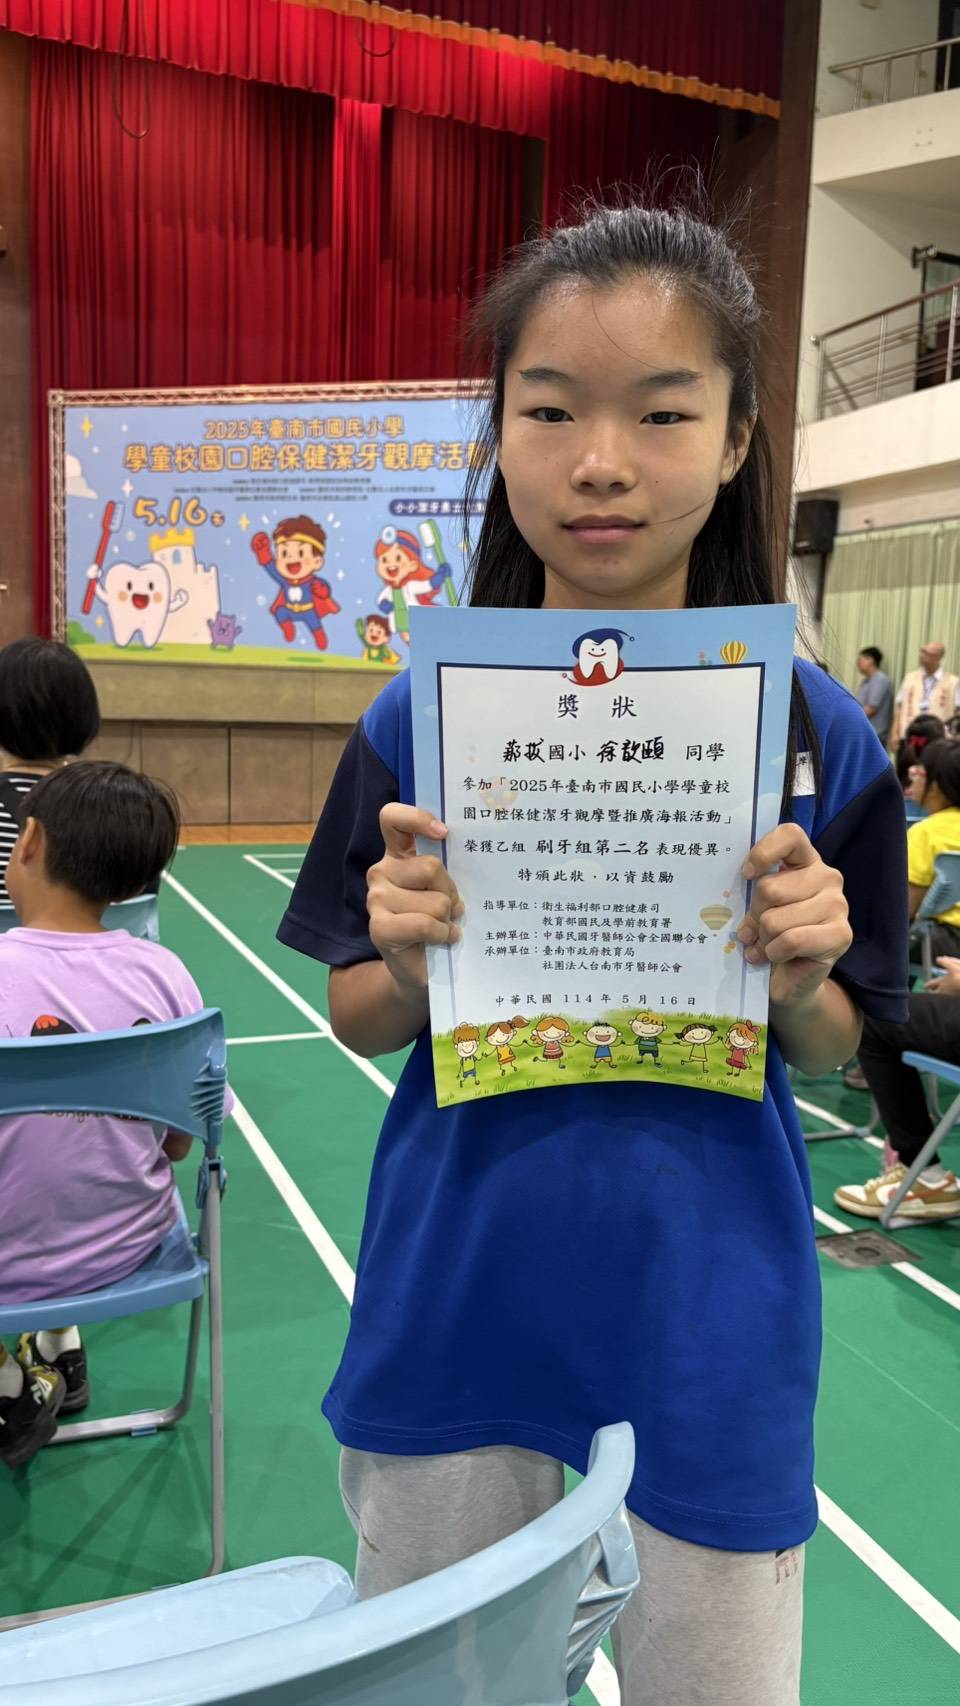 2025年臺南市國民小學
學童校園口腔保健潔牙觀摩活動
5.16
小小潔牙勇士
獎 狀
那拔國小 徐歆頤 同學
參加「2025年臺南市國民小學學童校
園口腔保健潔牙觀摩暨推廣海報活動」
榮獲乙組 刷牙組第二名 表現優異。
特頒此狀，以資鼓勵
指導單位：衛生福利部口腔健康司
教育部國民及學前教育署
主辦單位：中華民國牙醫師公會全國聯合會
承辦單位：臺南市政府教育局
社團法人台南市牙醫師公會
中華民國 114 年 5 月 16 日